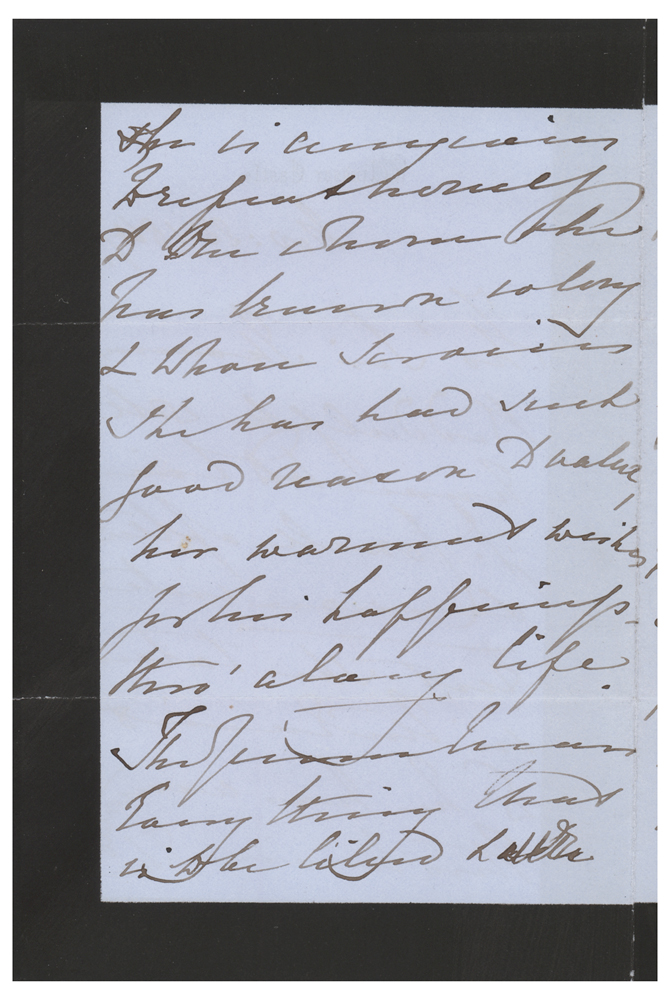 is anxious
To repeat herself
To One whom she
has known so long
& Whose Services
She has had such
good reason To value,
her warmest wishes
for his happiness
thro' a long life.
The
Every thing that
is to be liked &